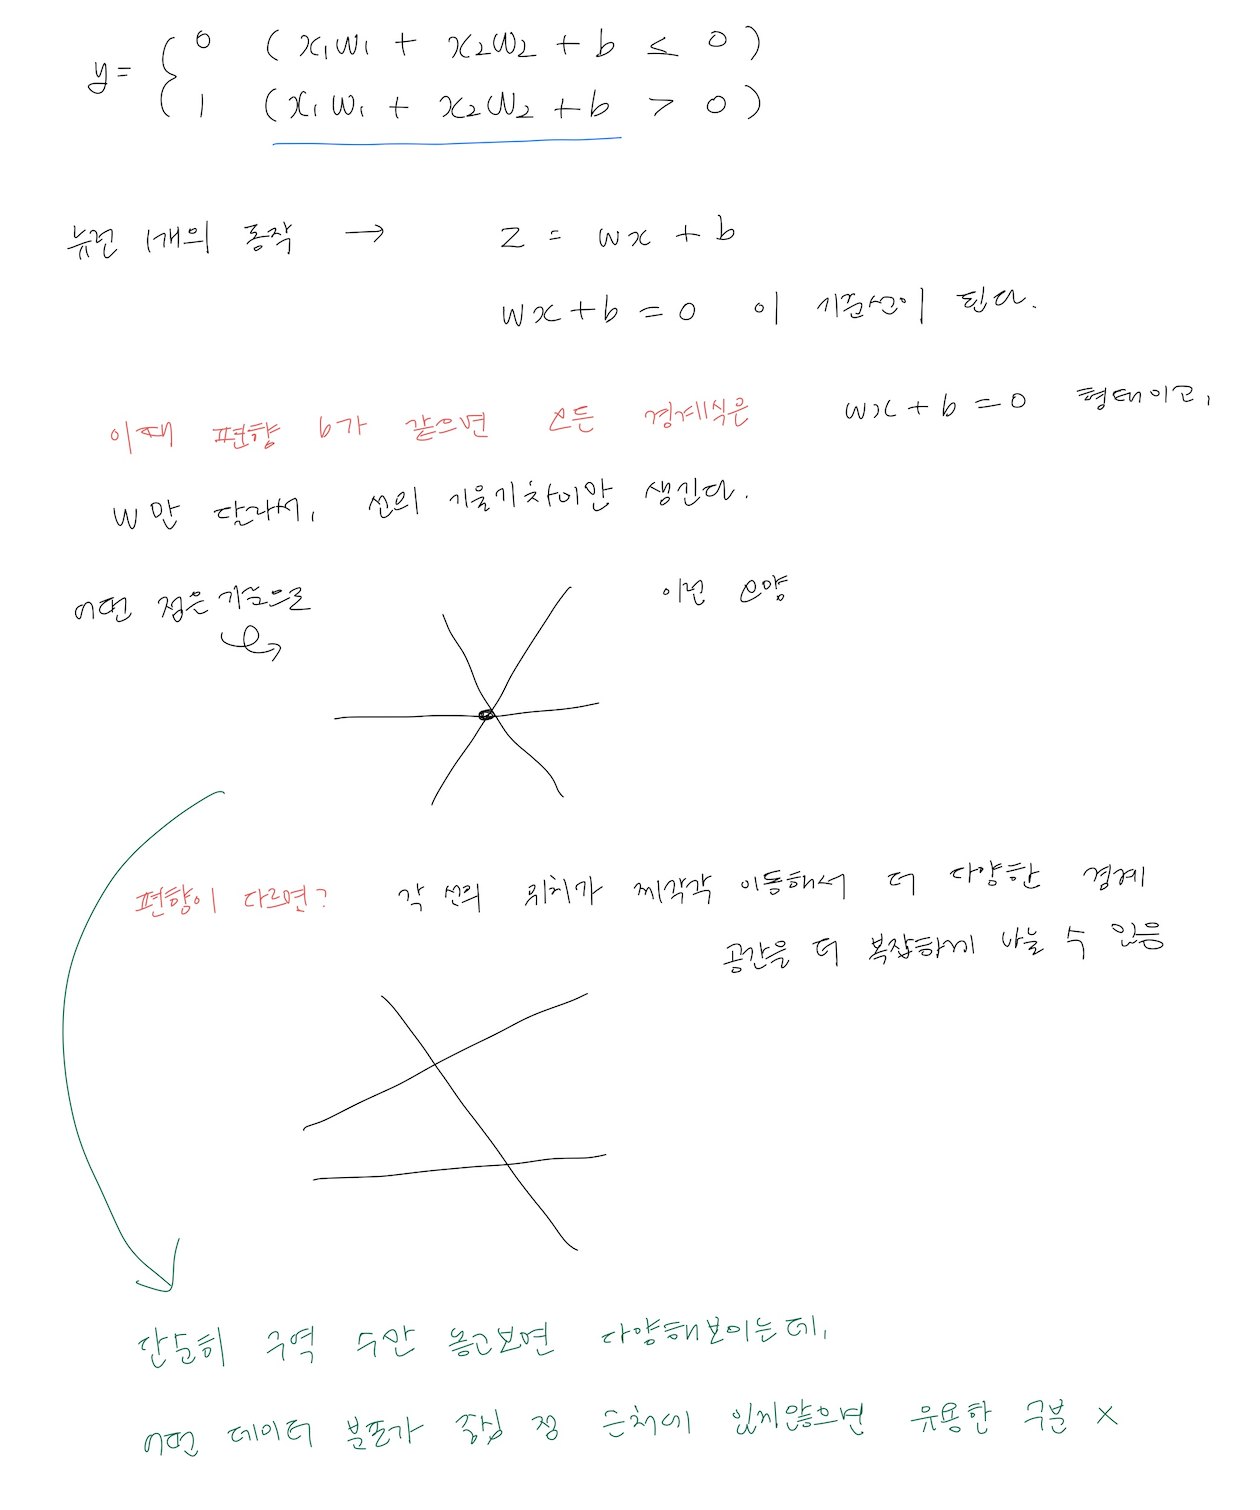 y = { 0 ( x₁w₁ + x₂w₂ + b ≤ 0 )
1 ( x₁w₁ + x₂w₂ + b > 0 )
뉴런 1개의 동작 → z = wx + b
wx + b = 0 이 기준선이 된다.
이때 편향 b가 같으면 모든 경계식은 wx + b = 0 형태이고,
w만 달라서, 선의 기울기차이만 생긴다.
어떤 점은 기준으로 이런 모양
편향이 다르면? 각 선의 위치가 제각각 이동해서 더 다양한 경계
공간을 더 복잡하게 나눌 수 있음
단순히 구역 수만 놓고보면 다양해보이는데,
어떤 데이터 분포가 중심 점 근처에 있지않으면 유용한 구분 X